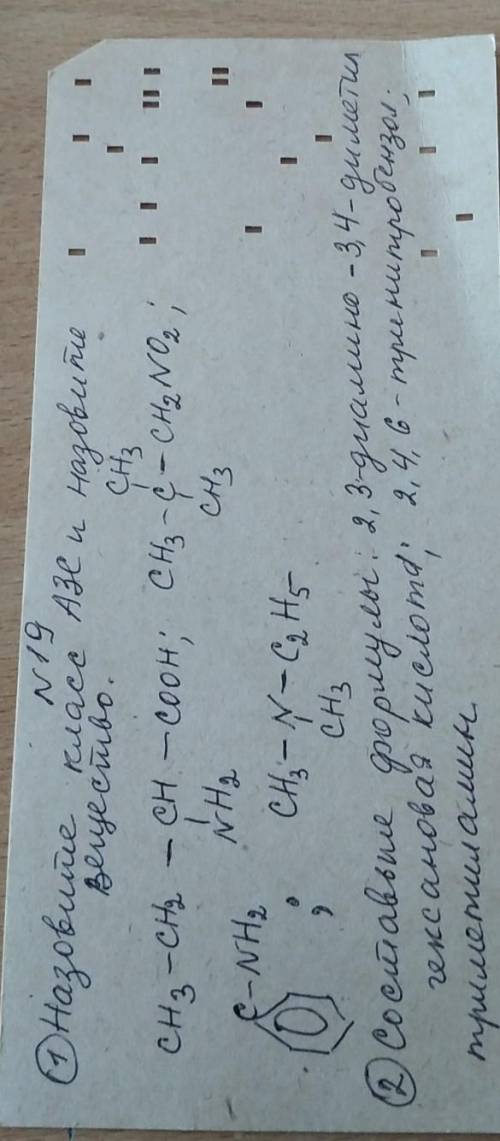 N19
① Назовите класс АЗС и назовите
вещество.
CH3
CH3 – CH2 – CH – COOH; CH3 – C – CH2NO2;
NH2 CH3
C – NH2 ; CH3 – N – C2H5
CH3
② Составьте формулы: 2,3-диамино-3,4-диметил
гексановая кислота; 2,4,6-тринитробензол;
триметиламин.